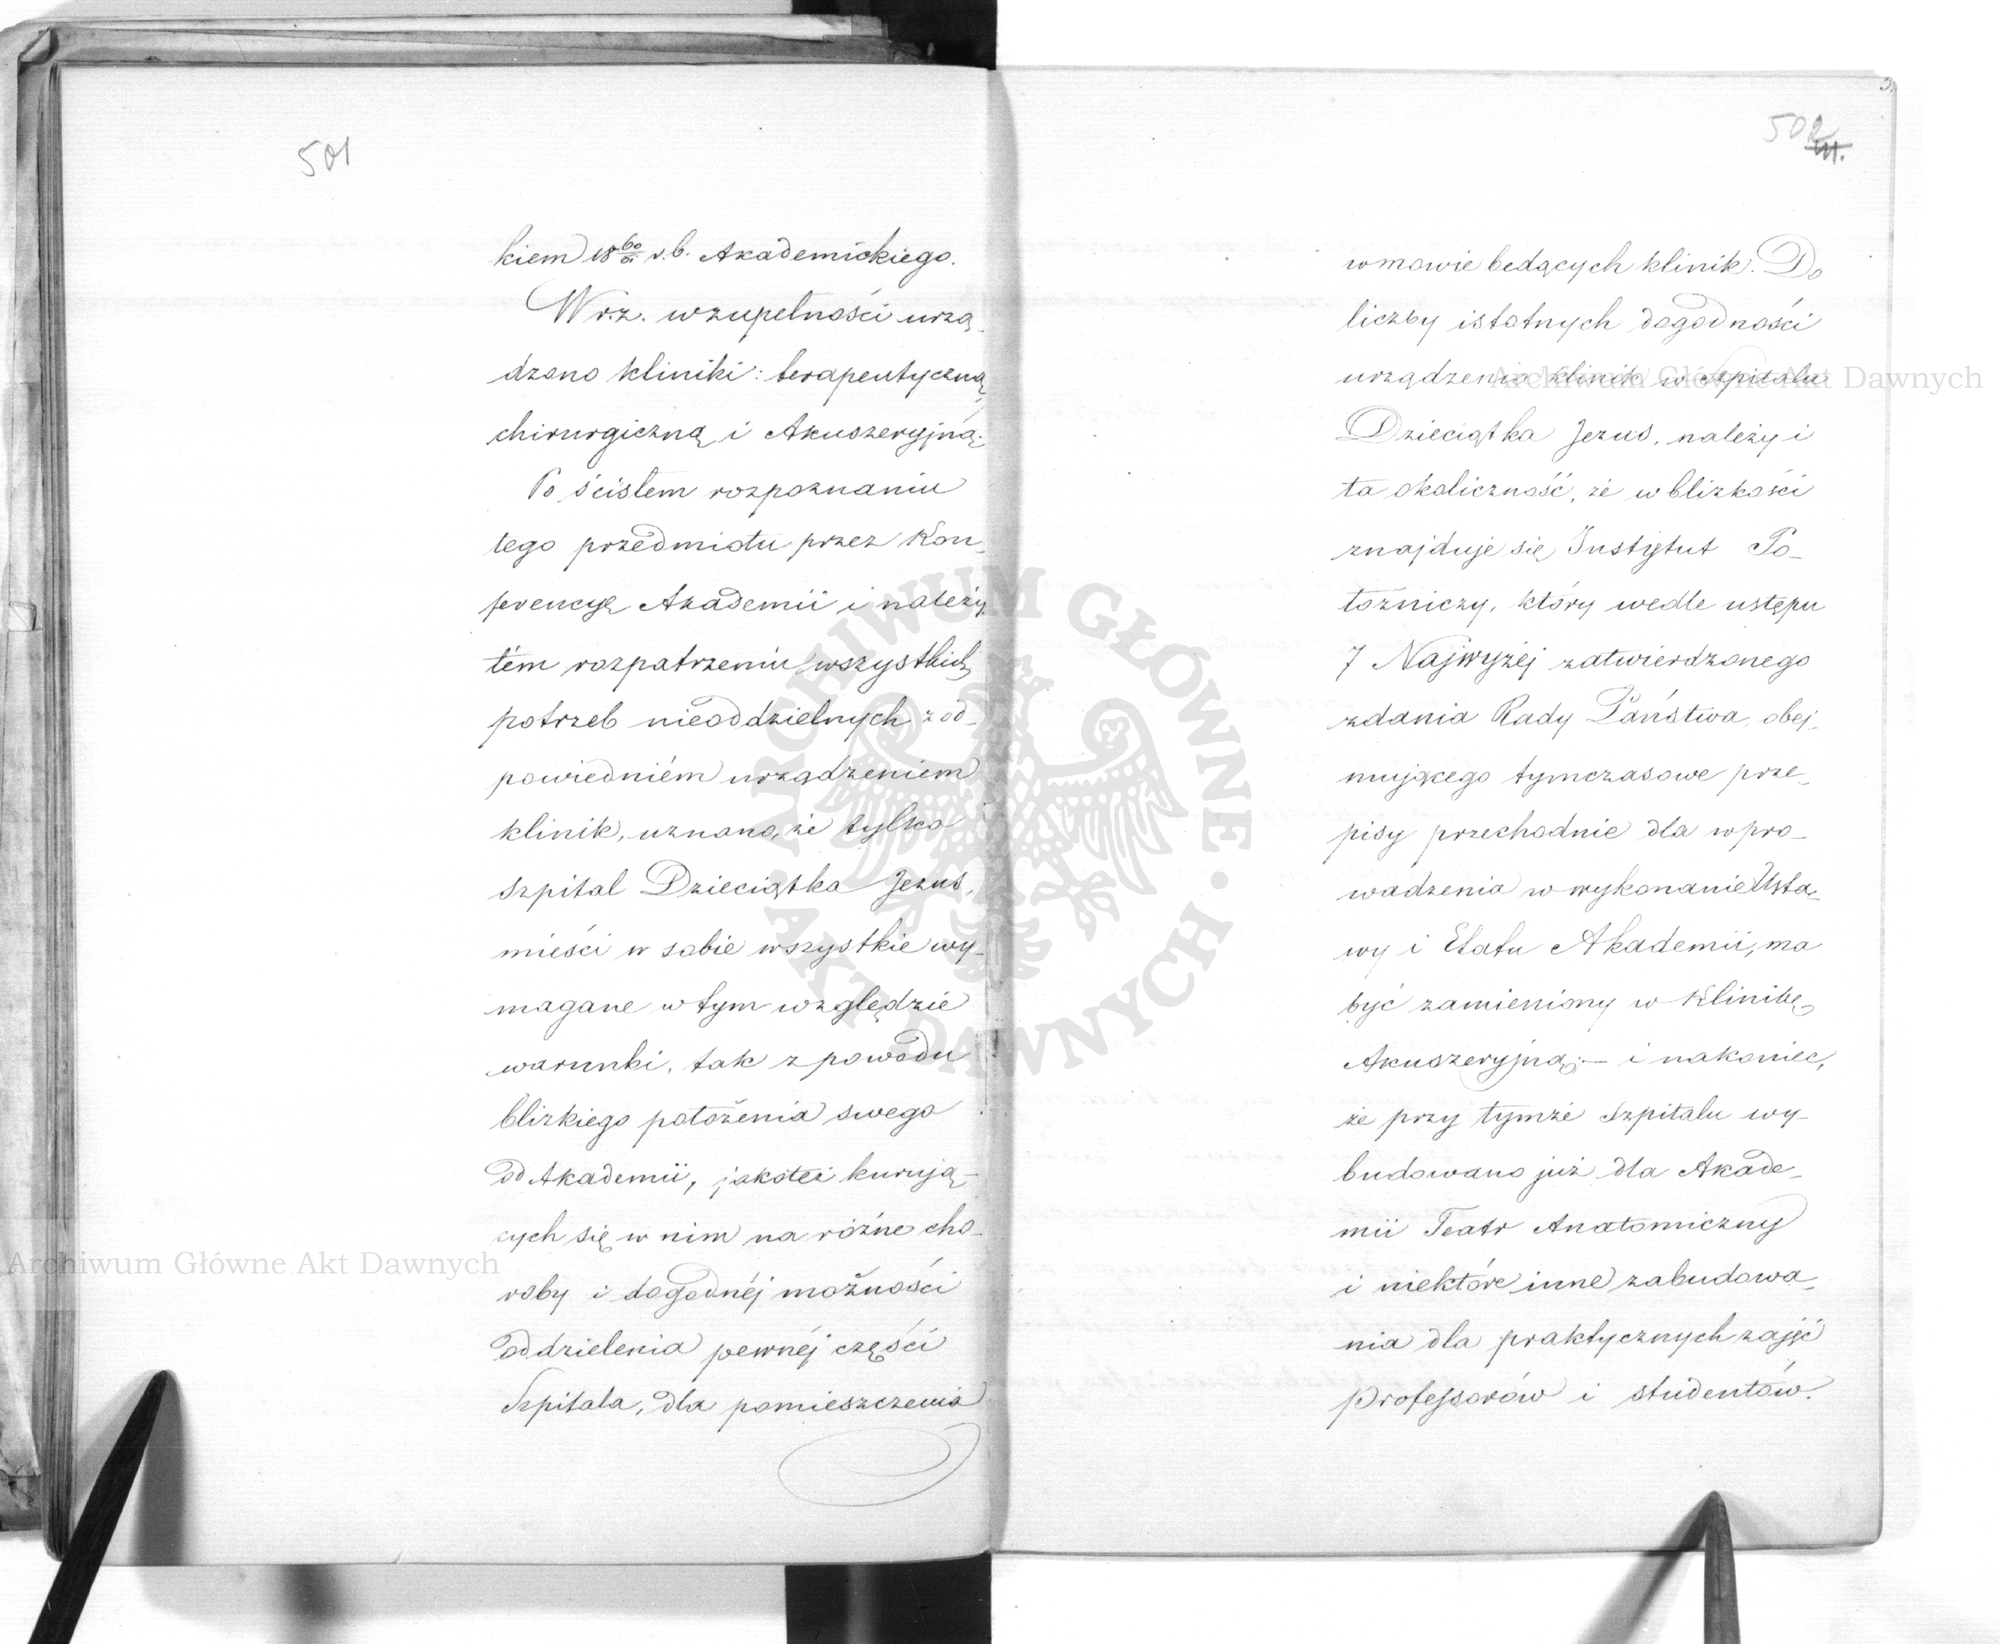 501
kiem 18 60/61 r.b. Akademickiego.
W r.z. w zupełności urzą-
dzono kliniki: terapeutyczną,
chirurgiczną i Akuszeryjną.
Po ścisłem rozpoznaniu
tego przedmiotu przez Kon-
ferencyę Akademii i należy-
tém rozpatrzeniu wszystkich
potrzeb nieoddzielnych z od-
powiedniém urządzeniem
klinik, uznano, że tylko
szpital Dzieciątka Jezus,
mieści w sobie wszystkie wy-
magane w tym względzie
warunki, tak z powodu
blizkiego położenia swego
od Akademii, jakoteż kurują-
cych się w nim na różne cho-
roby i dogodnéj możności
oddzielenia pewnéj części
Szpitala, dla pomieszczenia
502
w mowie będących klinik. Do
liczby istotnych dogodności
urządzenia klinik w szpitalu
Dzieciątka Jezus, należy i
ta okoliczność, że w blizkości
znajduje się Instytut Po-
łożniczy, który wedle ustępu
7 Najwyżej zatwierdzonego
zdania Rady Państwa, obej-
mującego tymczasowe prze-
pisy przechodnie dla wpro-
wadzenia w wykonanie Usta-
wy i Etatu Akademii, ma
być zamieniony w Klinikę
Akuszeryjną; — i nakoniec,
że przy tymże Szpitalu wy-
budowano już dla Akade-
mii Teatr Anatomiczny
i niektóre inne zabudowa-
nia dla praktycznych zajęć
professorów i studentów.
Archiwum Główne Akt Dawnych
Archiwum Główne Akt Dawnych
ARCHIWUM GŁÓWNE · AKT DAWNYCH ·